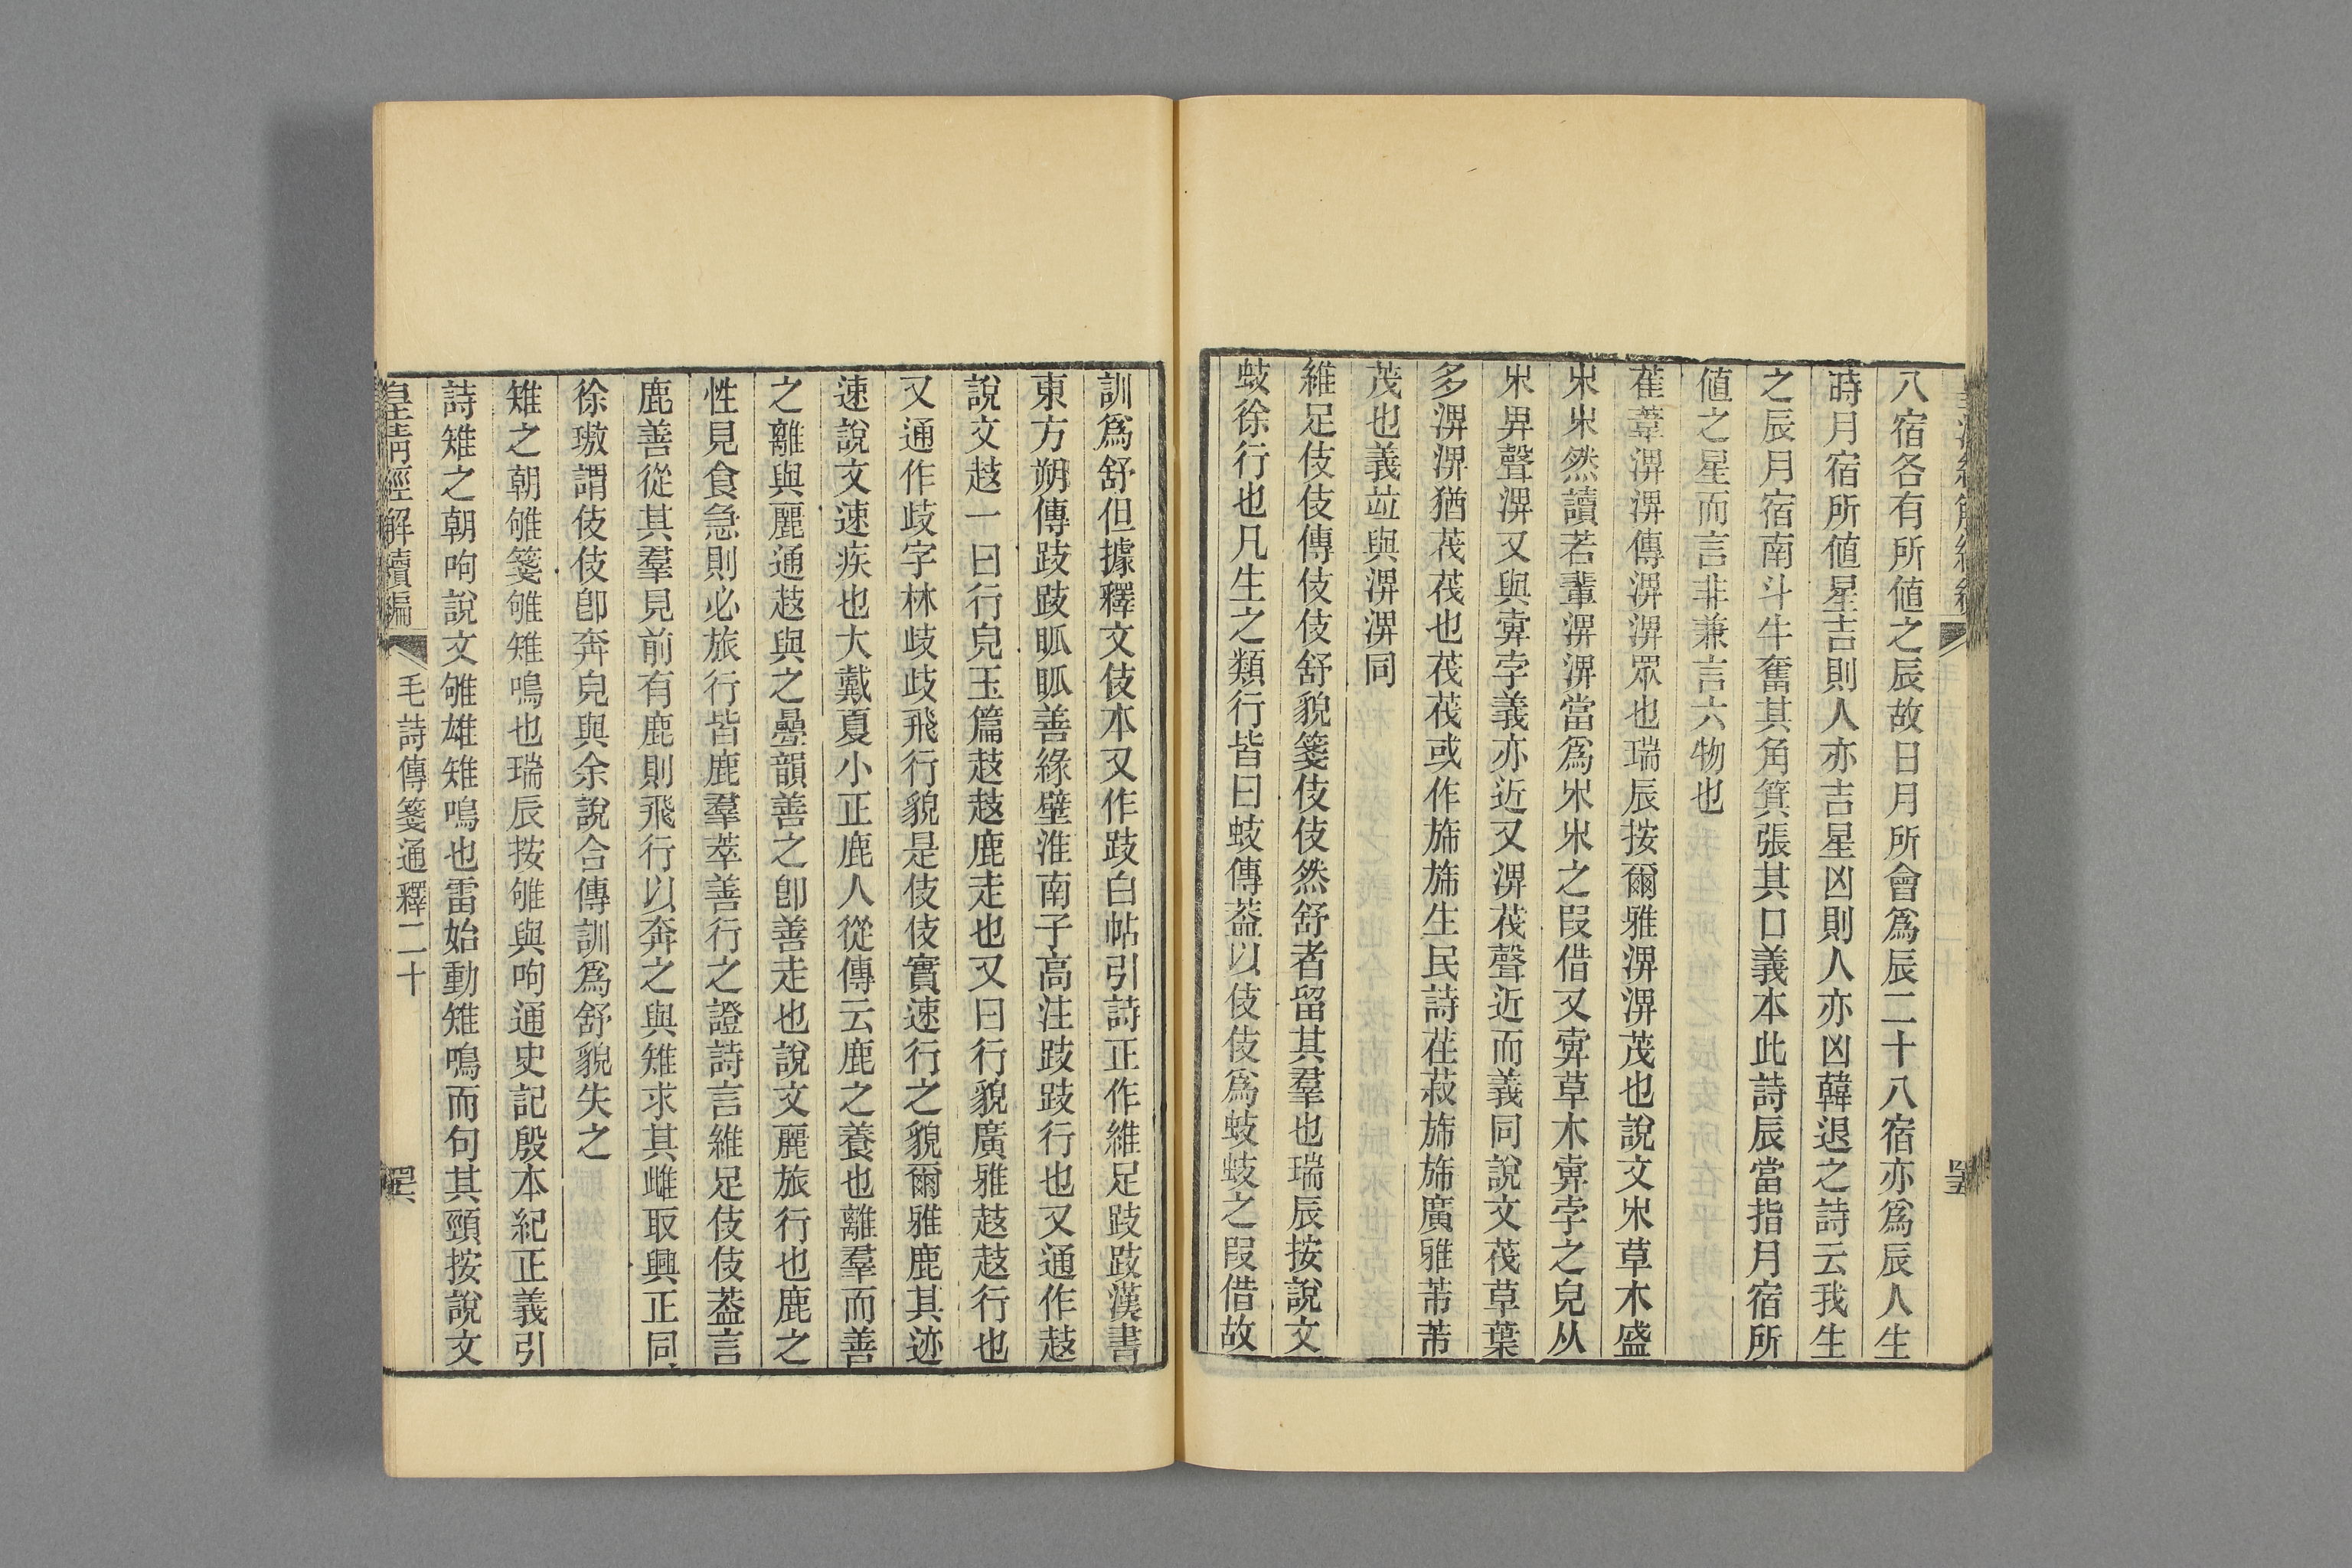 八宿各有所値之辰故日月所會爲辰二十八宿亦爲辰人生
時月宿所値星吉則人亦吉星凶則人亦凶韓退之詩云我生
之辰月宿南斗牛奮其角箕張其口義本此詩辰當指月宿所
値之星而言非兼言六物也
萑葦淠淠傳淠淠眾也瑞辰按爾雅淠淠茂也說文𣎵草木盛
𣎵𣎵然讀若輩淠淠當爲𣎵𣎵之叚借又𡴫草木𡴫孛之皃从
𣎵畀聲淠又與𡴫孛義亦近又淠茷聲近而義同說文茷草葉
多淠淠猶茷茷也茷茷或作旆旆生民詩荏菽旆旆廣雅芾芾
茂也義竝與淠淠同
維足伎伎傳伎伎舒貌箋伎伎然舒者留其羣也瑞辰按說文
蚑徐行也凡生之類行皆曰蚑傳葢以伎伎爲蚑蚑之叚借故
訓爲舒但據釋文伎本又作跂白帖引詩正作維足跂跂漢書
東方朔傳跂跂眽眽善緣壁淮南子高注跂跂行也又通作𧺆
說文𧺆一曰行皃玉篇𧺆𧺆鹿走也又曰行貌廣雅𧺆𧺆行也
又通作歧字林歧歧飛行貌是伎伎實速行之貌爾雅鹿其迹
速說文速疾也大戴夏小正鹿人從傳云鹿之養也離羣而善
之離與麗通𧺆與之曡韻善之卽善走也說文麗旅行也鹿之
性見食急則必旅行皆鹿羣萃善行之證詩言維足伎伎葢言
鹿善從其羣見前有鹿則飛行以奔之與雉求其雌取興正同
徐璈謂伎伎卽奔皃與余說合傳訓爲舒貌失之
雉之朝雊箋雊雉鳴也瑞辰按雊與呴通史記殷本紀正義引
詩雉之朝呴說文雊雄雉鳴也雷始動雉鳴而句其頸按說文
皇淸經解續編 毛詩傳箋通釋二十